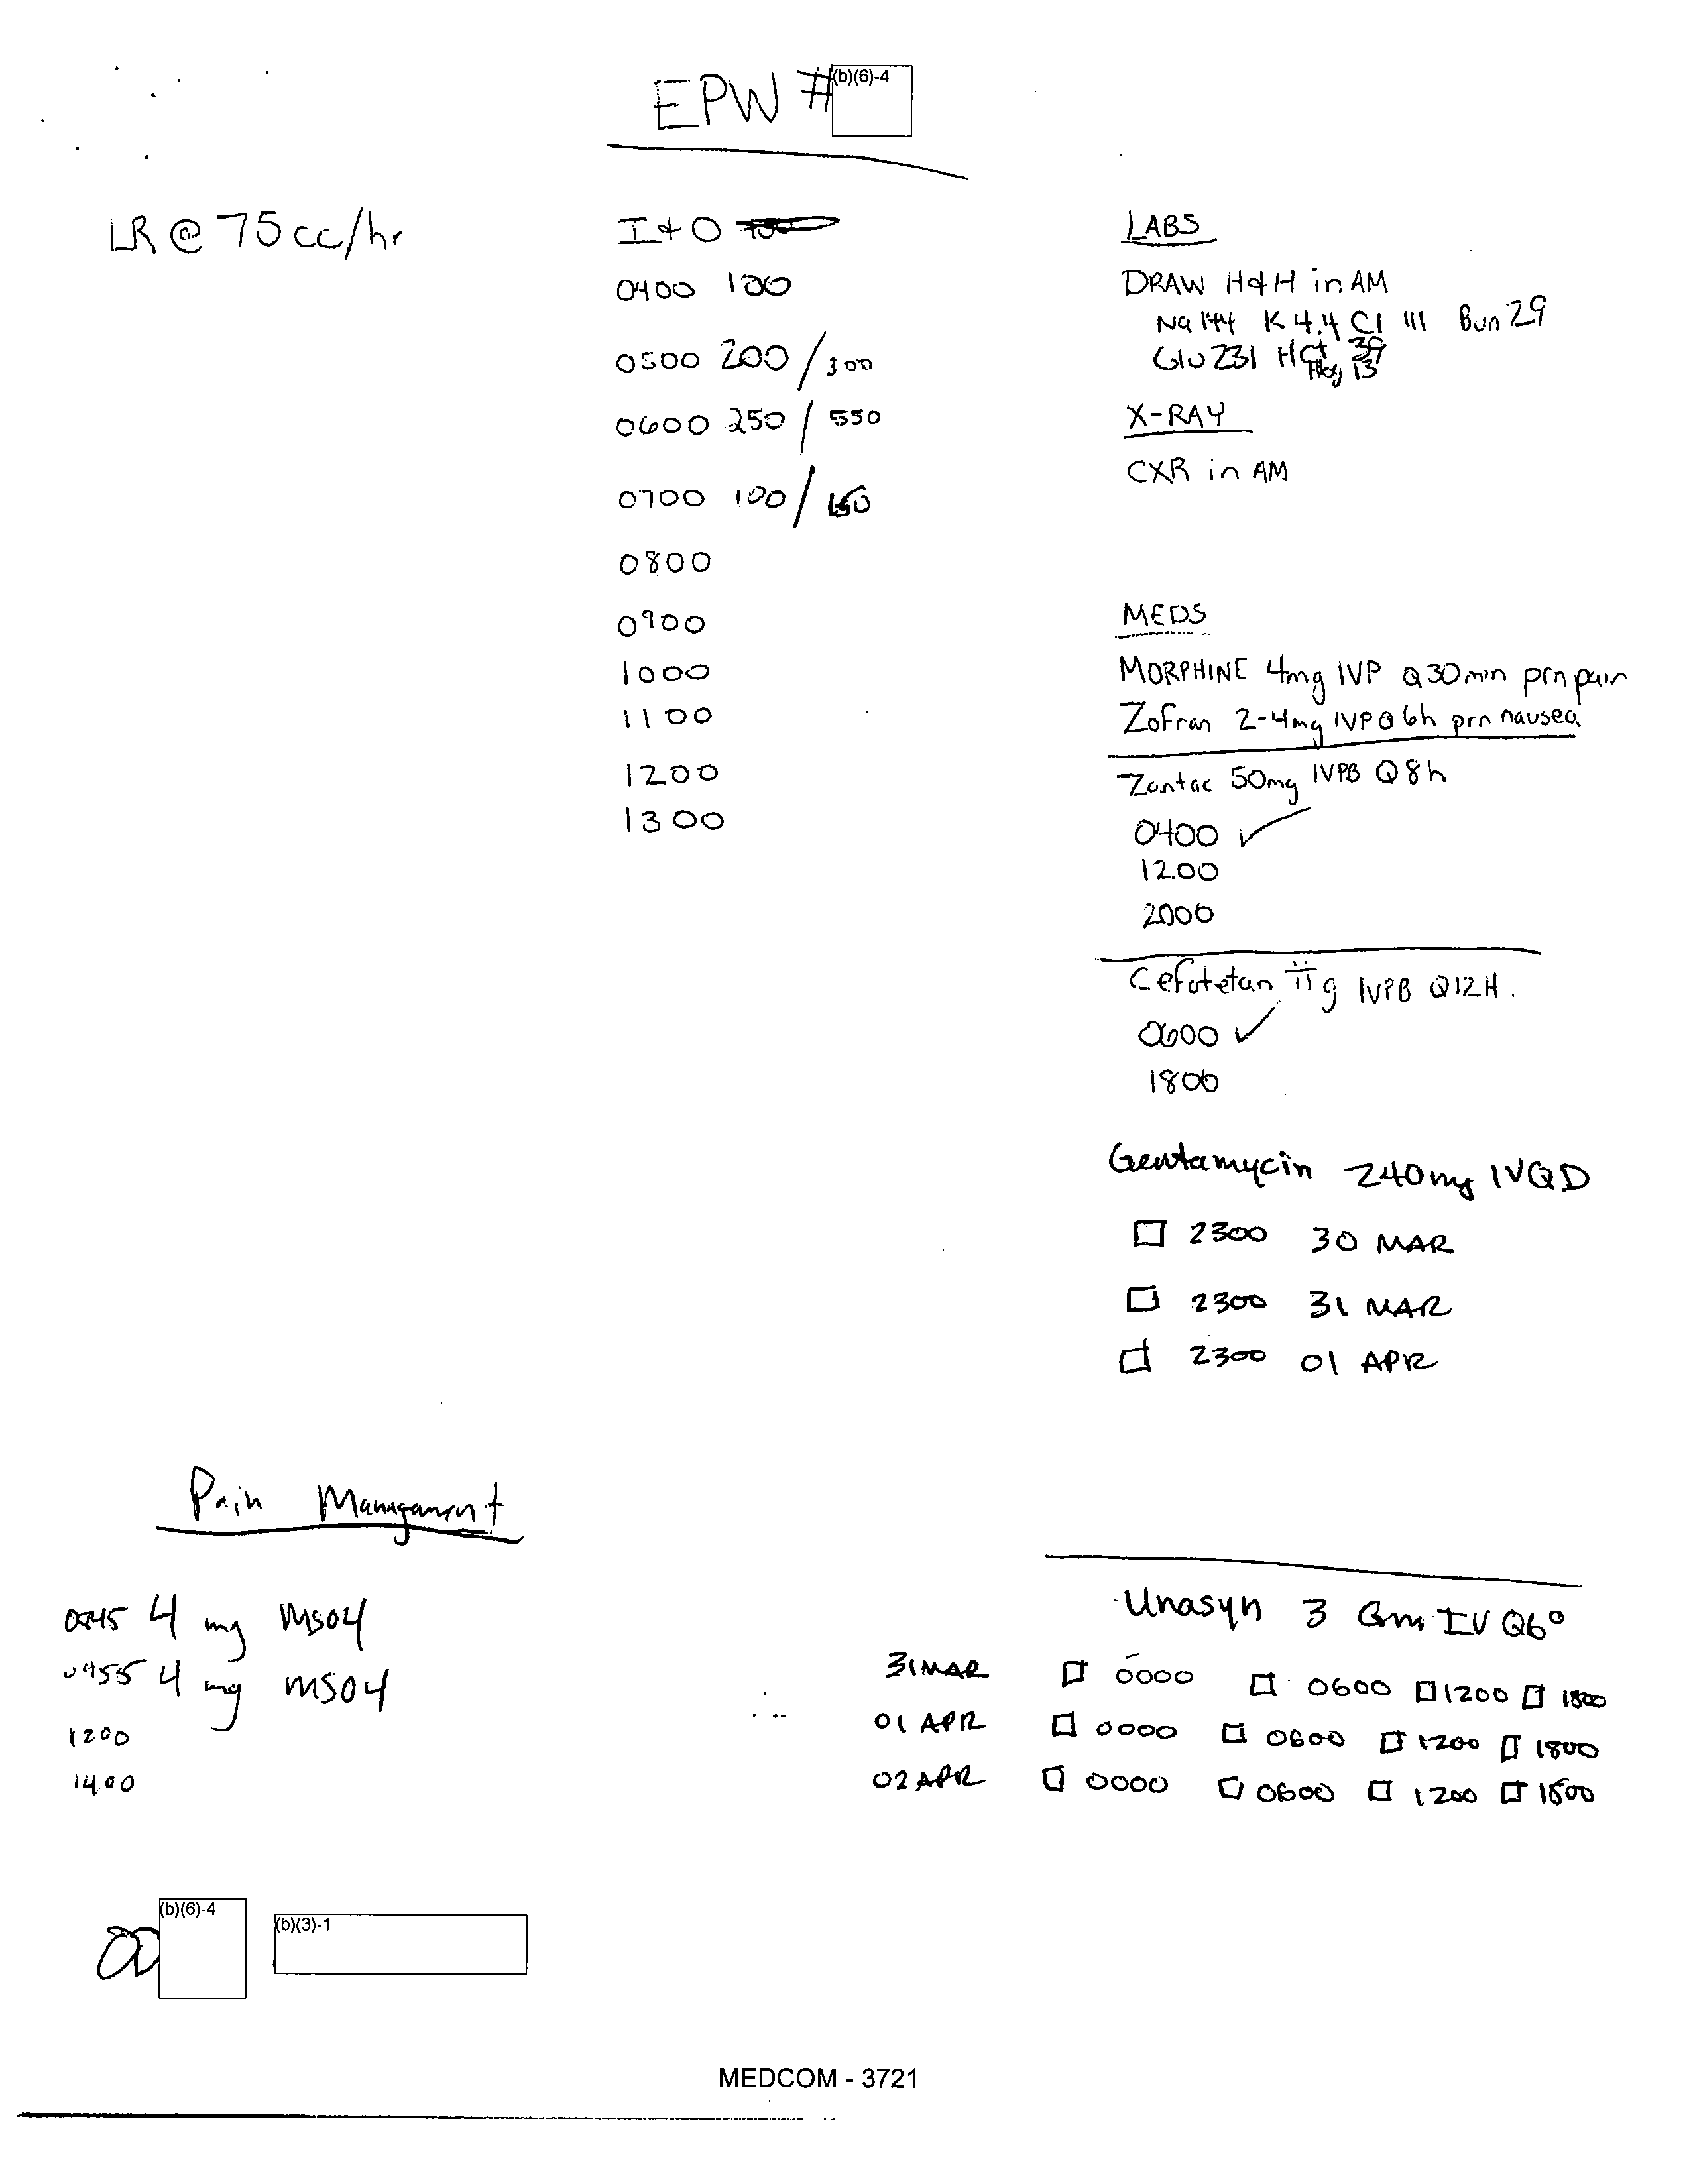 EPW # (b)(6)-4
LR @ 75 cc/hr
I & O
0400 100
0500 200 / 300
0600 250 / 550
0700 100 / 150
0800
0900
1000
1100
1200
1300
LABS
DRAW H&H in AM
Na 144 K 4.4 Cl 111 Bun 29
Glu 231 HCt 39
Hbg 13
X-RAY
CXR in AM
MEDS
MORPHINE 4mg IVP Q30min prn pain
Zofran 2-4mg IVP Q 6h prn nausea
Zantac 50mg IVPB Q8h
0400 ✓
1200
2000
Cefotetan ii g IVPB Q12H.
0600 ✓
1800
Gentamycin 240mg IV QD
☐ 2300 30 MAR
☐ 2300 31 MAR
☐ 2300 01 APR
Pain Managament
4 mg MSO4
0955 4 mg MSO4
1200
1400
Unasyn 3 Gm IV Q6°
31 MAR ☐ 0000 ☐ 0600 ☐ 1200 ☐ 1800
01 APR ☐ 0000 ☐ 0600 ☐ 1200 ☐ 1800
02 APR ☐ 0000 ☐ 0600 ☐ 1200 ☐ 1800
(b)(6)-4
(b)(3)-1
MEDCOM - 3721